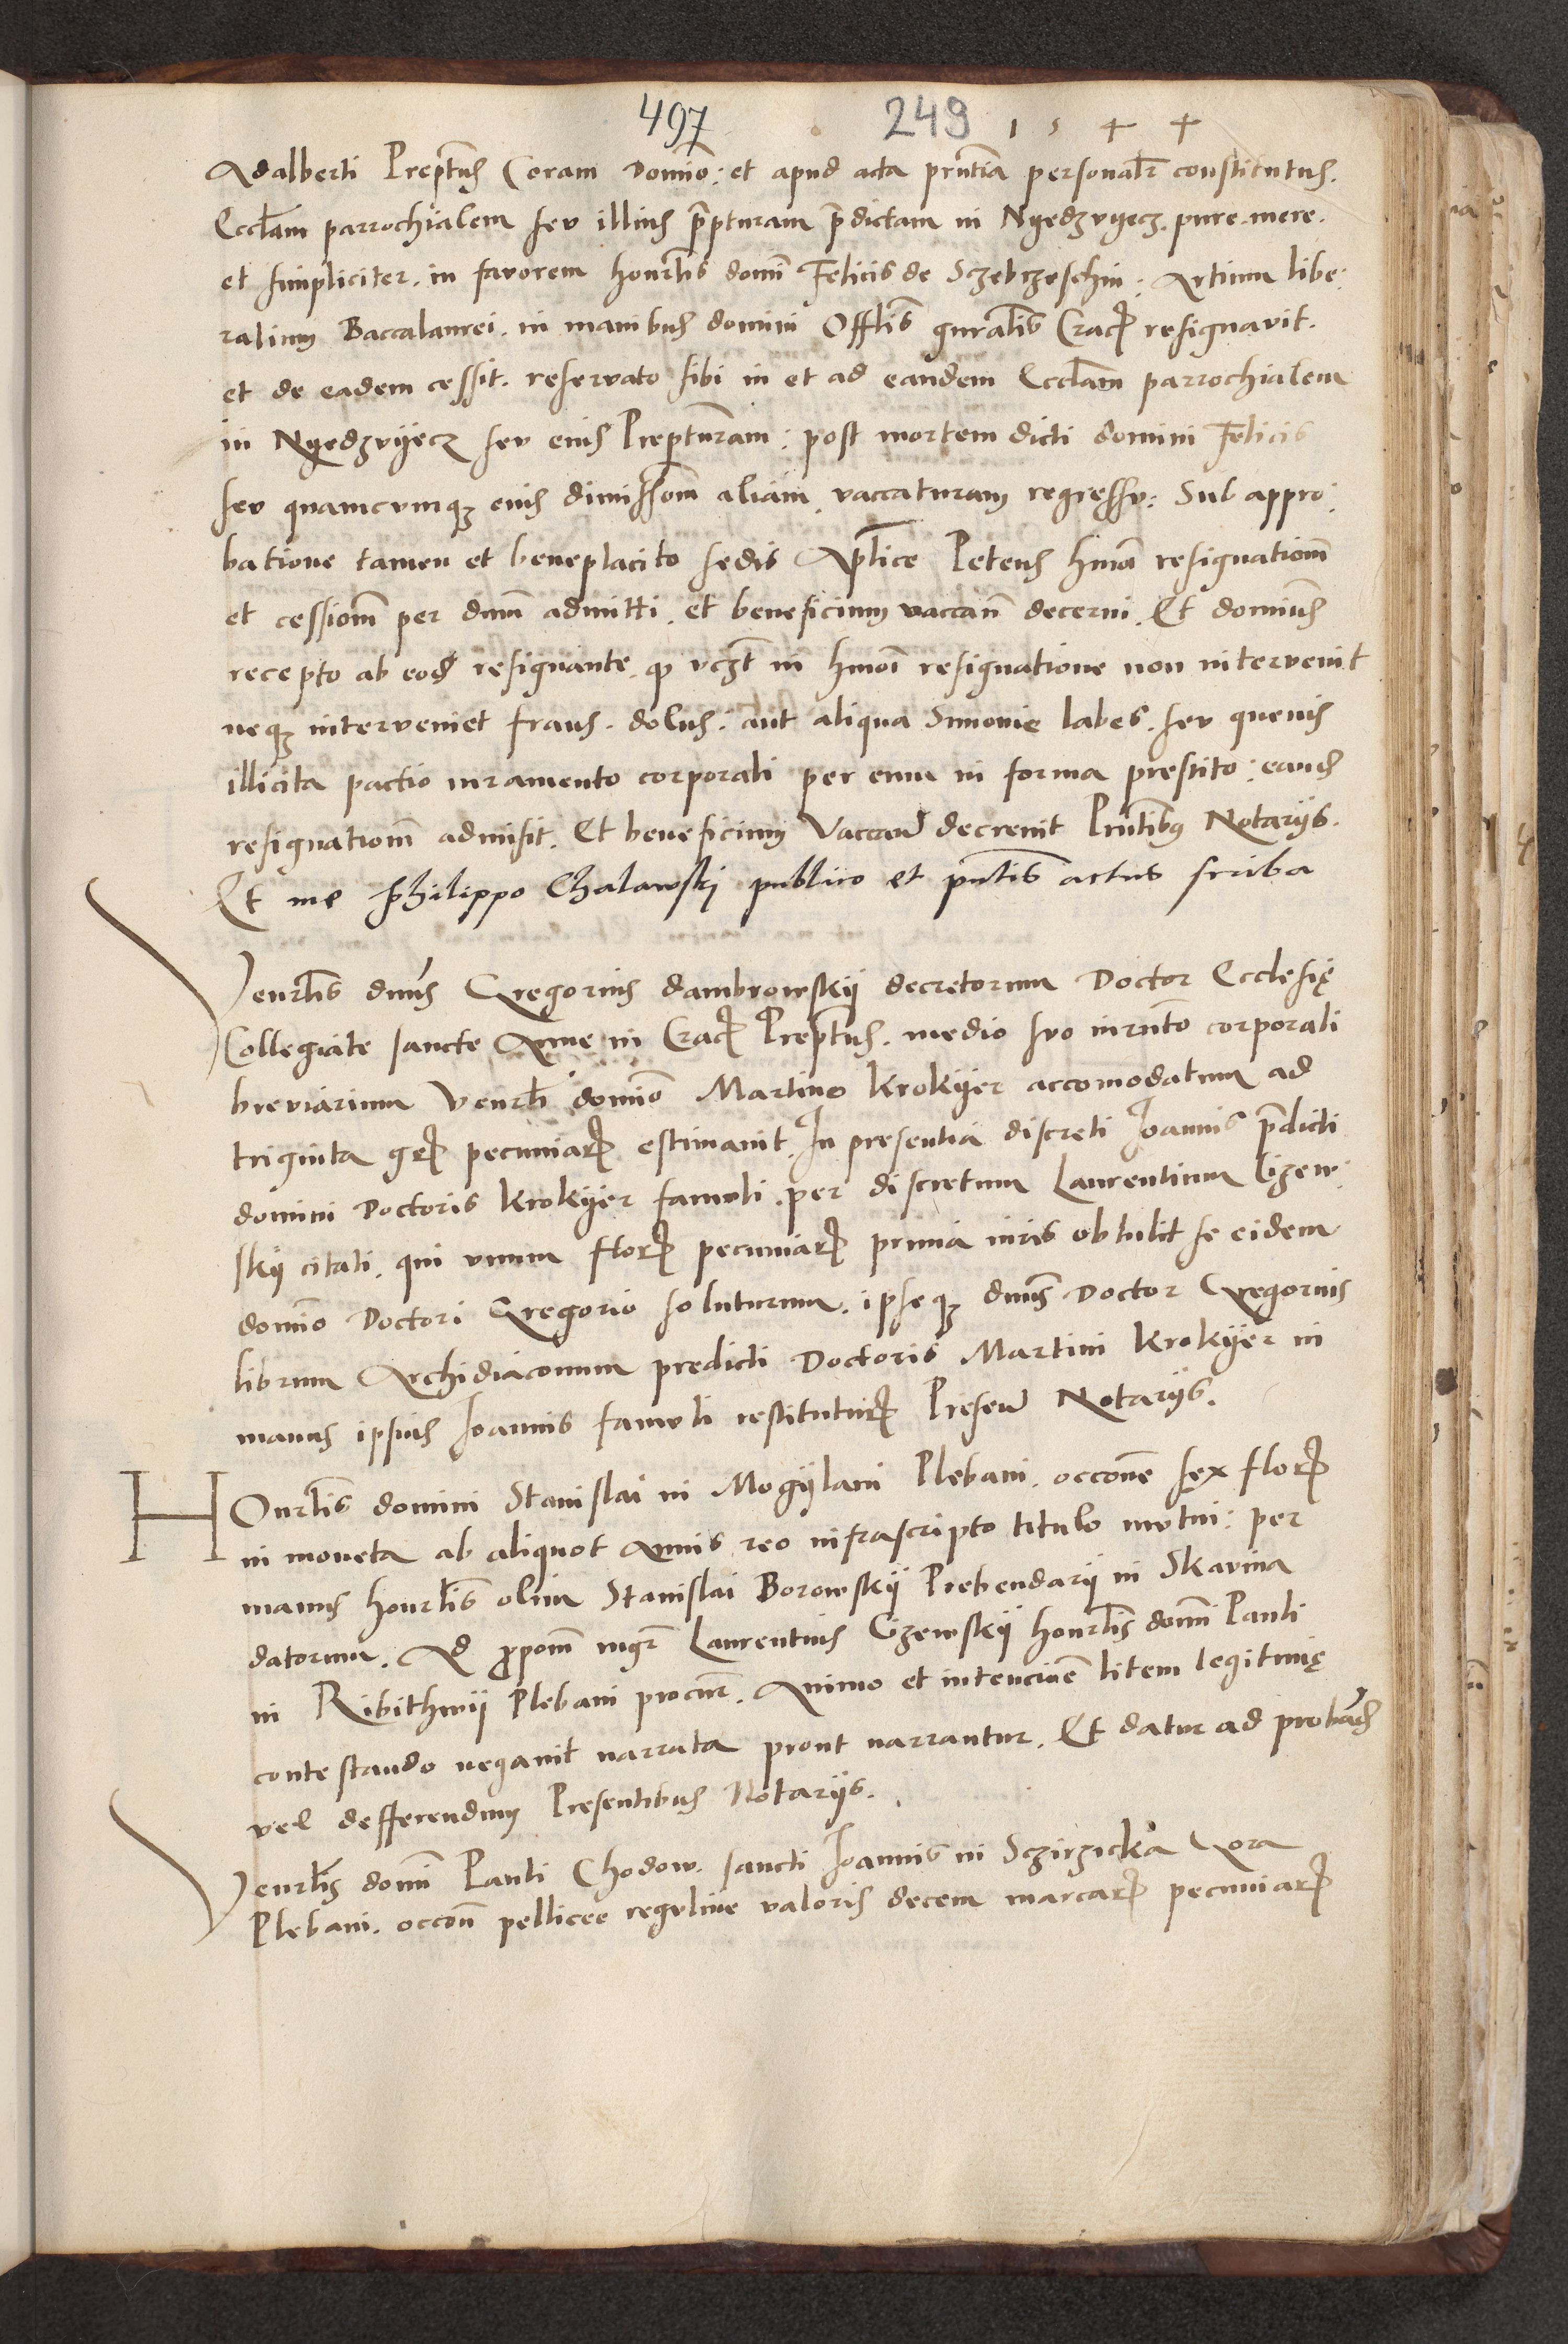 497 249 1544
Adalberti Preptus Coram Domino: et apud acta pntia personalr constitutus.
Ecclam parrochialem seu illius prpturam prdictam in Nyedzvyecz. pure. mere.
et simpliciter. in favorem honrlis domi Felicis de Sczebrzeschin: Artium libe:
ralium Baccalaurei. in manibus domini Offlis gnralis Crac resignavit.
et de eadem cessit. reservato sibi in et ad eandem Ecclam parrochialem
in Nyedzvyecz seu eius Prepturam: post mortem dicti domini Felicis
seu quamcumqz eius dimissom aliam. vaccaturam regressu: Sub appro:
batione tamen et beneplacito sedis Aplice Petens hmoi resignationm
et cessionm per dnum admitti. et beneficium vaccan decerni. Et dominus
recepto ab eod resignante. q vczt in hmoi resignatione non intervenit
neqz interveniet fraus. dolus. aut aliqua Simonie labes. seu quevis
illicita pactio iuramento corporali per eum in forma prestito: eamd
resignationm admisit. Et beneficium Vaccare decrevit Pntibus Notariis.
Et me Philippo Chalawski publico et pntis actus scriba
Venrlis dnus Gregorius dambrowskij decretorum Doctor Ecclesię
Collegiate sancte Anne in Crac Preptus. medio suo iurnto corporali
breviarium Venrli domino Martino Krokijer accomodatum ad
triginta gr pecuniar estimavit. In presentia discreti Joannis prdicti
domini Doctoris Krokijer famuli. per discretum Laurentium Gzew:
skij citati. qui unum flor pecuniar prima iuris obtulit se eidem
domino Doctori Gregorio soluturum. ipseqz dnus Doctor Gregorius
librum Archidiaconum predicti Doctoris Martini Krokijer in
manus ipsius Joannis famuli restituturus Presen Notariis.
Honrlis domini Stanislai in Mogylani Plebani. occone sex flor
in moneta ab aliquot annis reo infrascripto titulo mutui: per
manus honrlis olim Stanislai Borowskij Prebendarij in Skavina
datorum. Ad propom mgr Laurentius Gzewskij honrlis domi Pauli
in Ribithwij Plebani procur. Animo et intencione litem legitimę
contestando negavit narrata prout narrantur. Et datur ad proband
vel defferendum Presentibus Notarijs.
Venrlis domi Pauli Chodow. sancti Joannis in Sczirzicka Gora
Plebani. occon pellicee regulive valoris decem marcar pecuniar